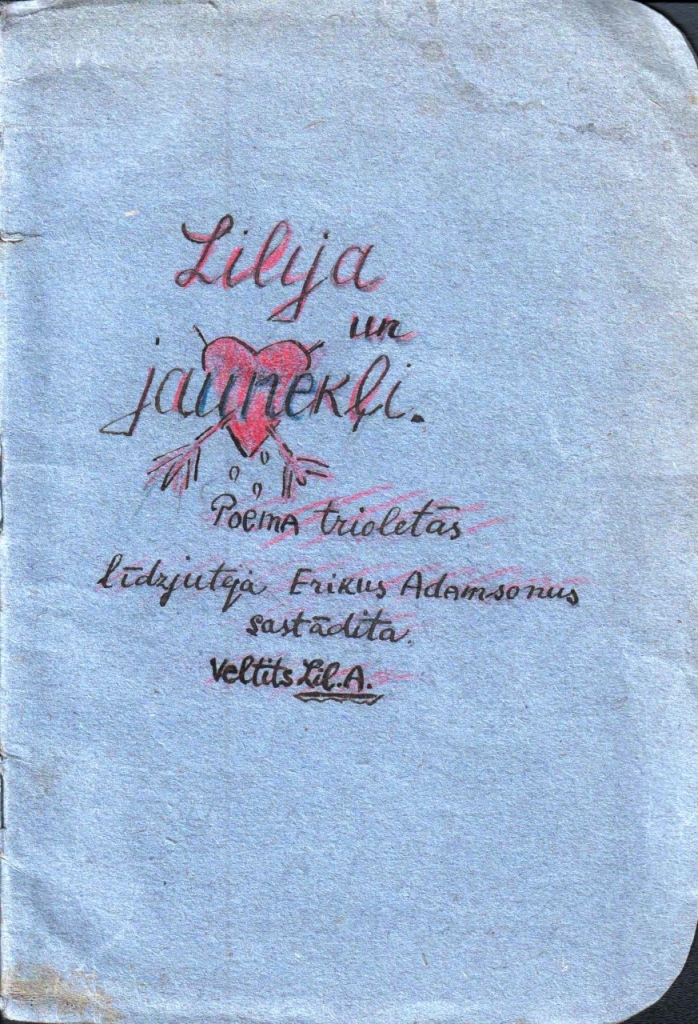 Lilija
un
jaunekļi.
Poēma trioletās
līdzjutēja Erikus Adamsonus
sastādita.
Veltits Lil. A.